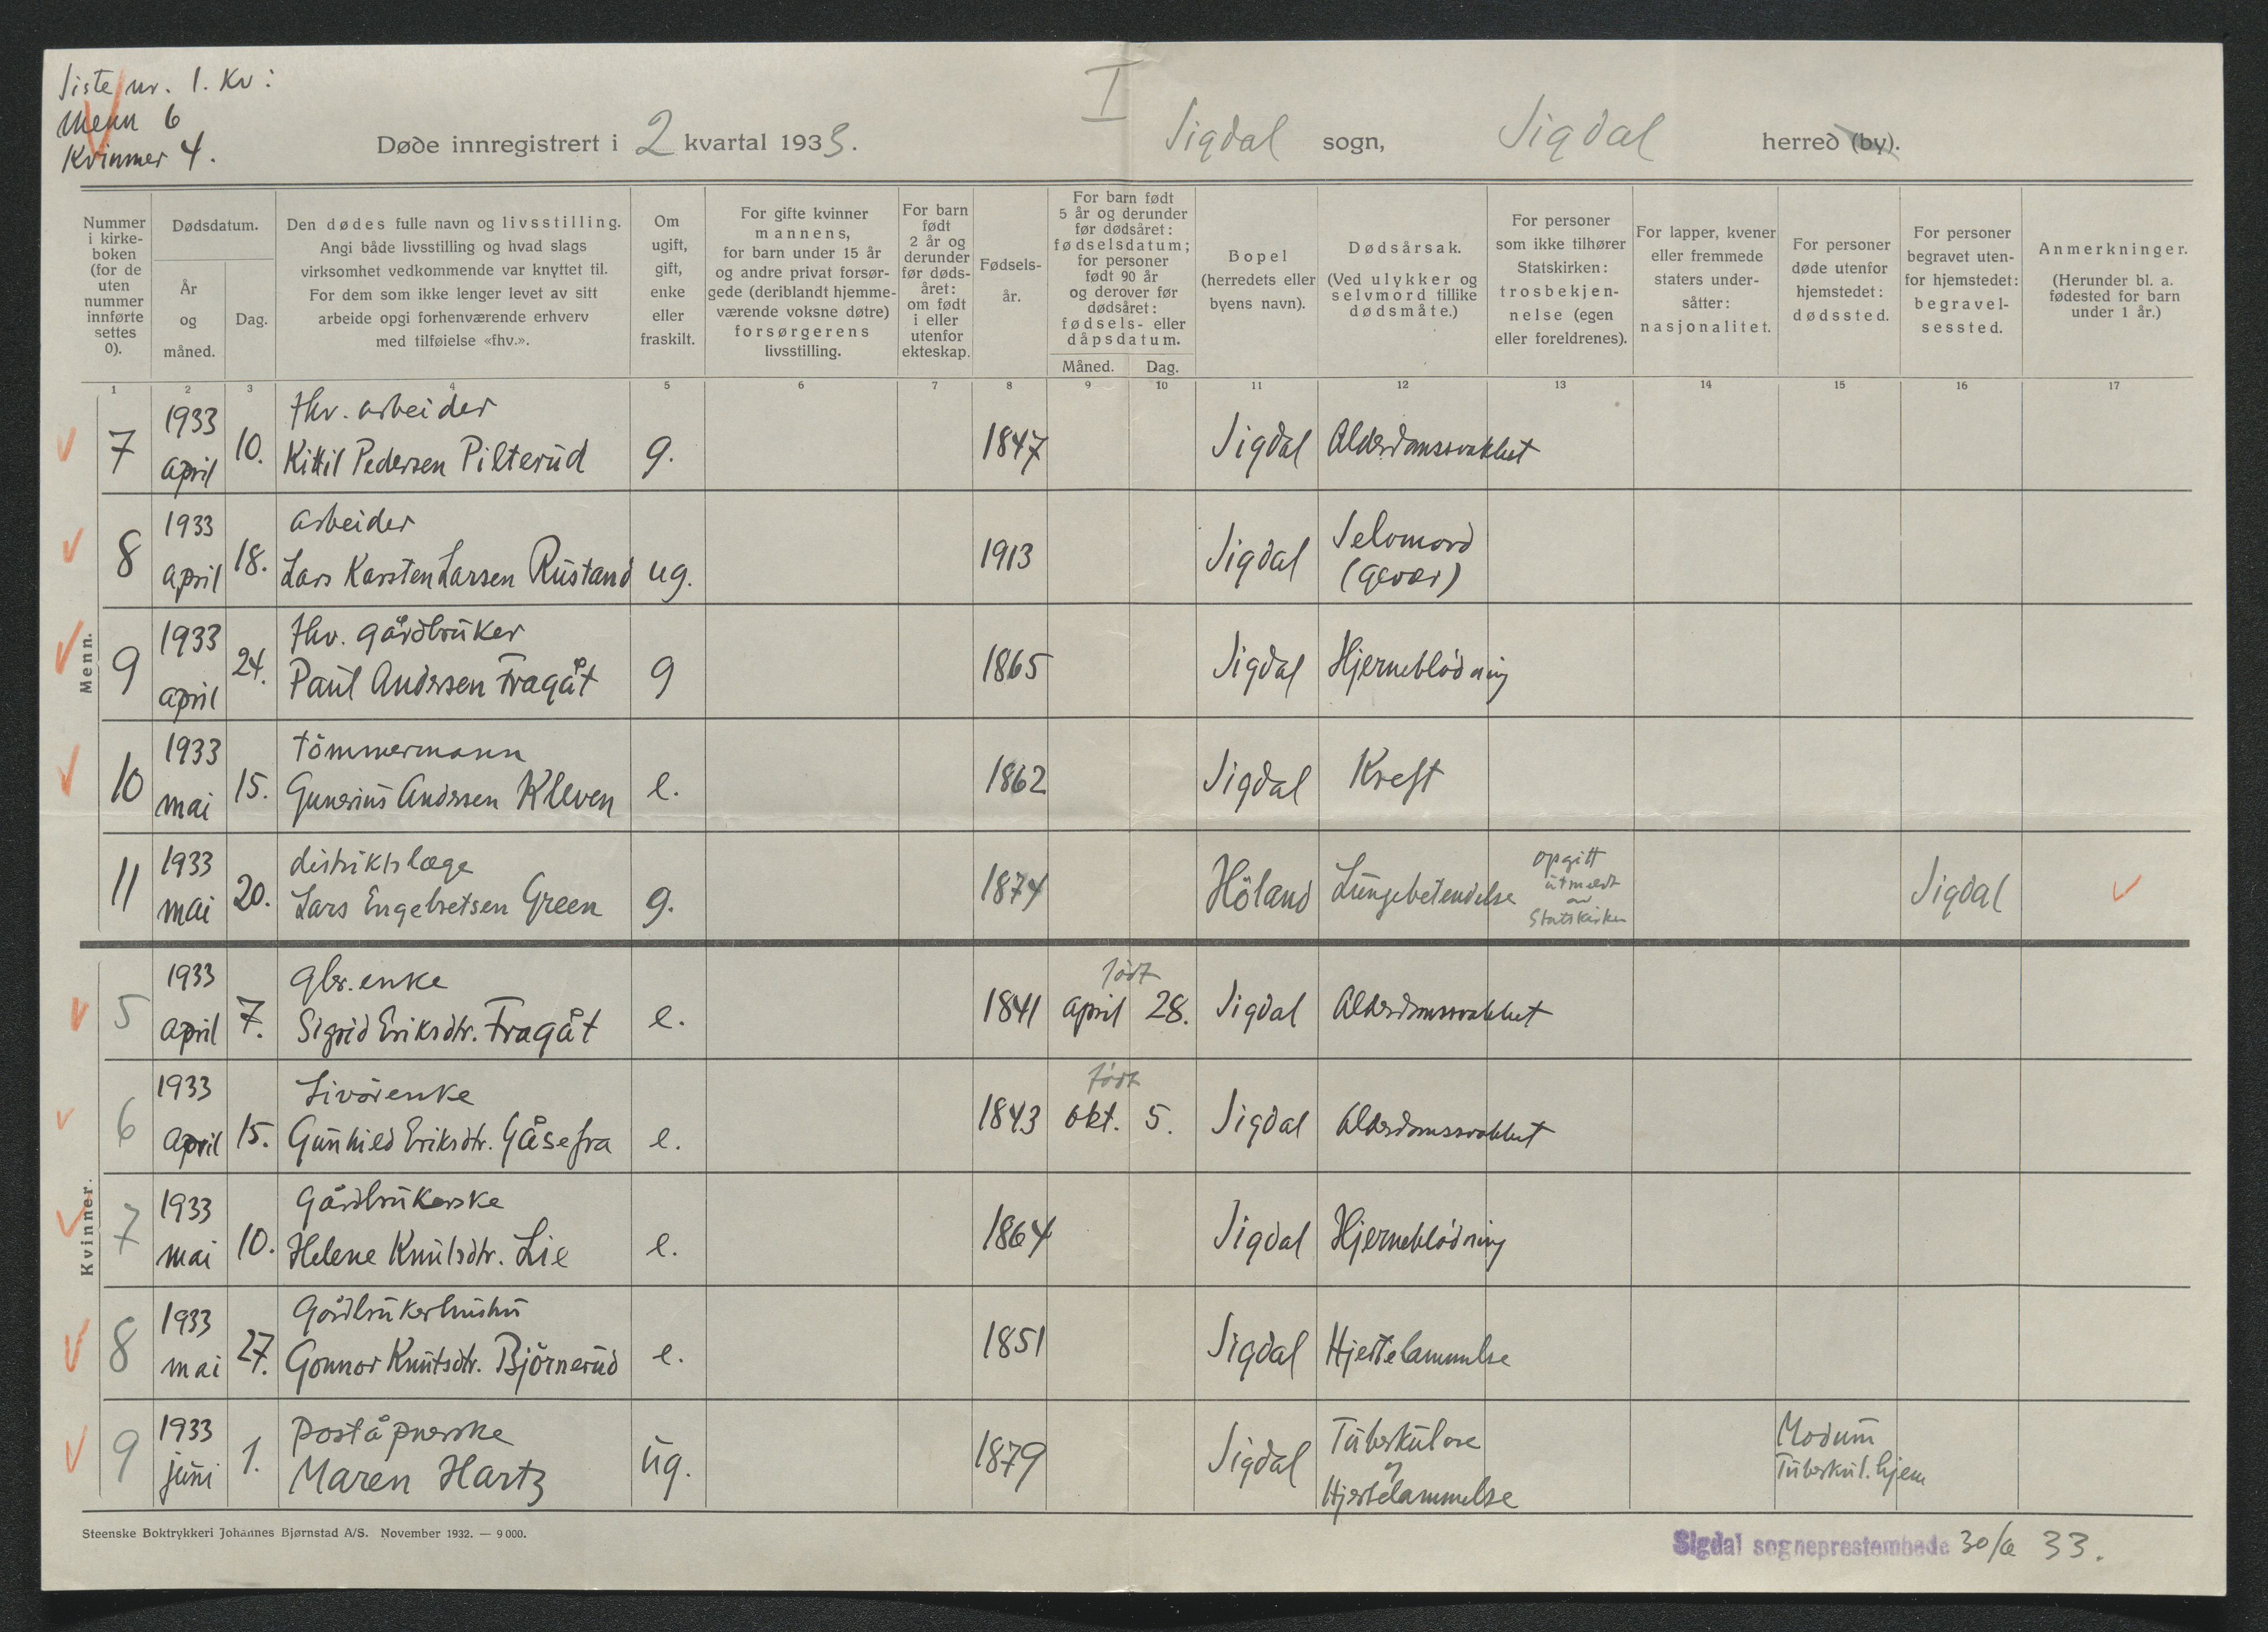 Siste nr. 1. Kv:
Menn 6
Kvinner 4.
I
Døde innregistrert i 2 kvartal 1933. Sigdal sogn, Sigdal herred (by).
Nummer i kirkeboken (for de uten nummer innførte settes 0).
Dødsdatum.
År og måned.
Dag.
Den dødes fulle navn og livsstilling.
Angi både livsstilling og hvad slags
virksomhet vedkommende var knyttet til.
For dem som ikke lenger levet av sitt
arbeide opgi forhenværende erhverv
med tilføielse «fhv.».
Om ugift, gift, enke eller fraskilt.
For gifte kvinner
mannens,
for barn under 15 år
og andre privat forsør-
gede (deriblandt hjemme-
værende voksne døtre)
forsørgerens
livsstilling.
For barn
født
2 år og
derunder
før døds-
året:
om født
i eller
utenfor
ekteskap.
Fødsels-
år.
For barn født
5 år og derunder
før dødsåret:
fødselsdatum;
for personer
født 90 år
og derover før
dødsåret:
fødsels- eller
dåpsdatum.
Måned. Dag.
Bopel
(herredets eller
byens navn).
Dødsårsak.
(Ved ulykker og
selvmord tillike
dødsmåte.)
For personer
som ikke tilhører
Statskirken:
trosbekjen-
nelse (egen
eller foreldrenes).
For lapper, kvener
eller fremmede
staters under-
såtter:
nasjonalitet.
For personer
døde utenfor
hjemstedet:
dødssted.
For personer
begravet uten-
for hjemstedet:
begravel-
sessted.
Anmerkninger.
(Herunder bl. a.
fødested for barn
under 1 år.)
1 2 3 4 5 6 7 8 9 10 11 12 13 14 15 16 17
Menn.
1933 fhv. arbeider
7 april 10. Kittil Pedersen Pilterud g. 1847 Sigdal Alderdomssvakhet
1933 arbeider Selvmord
8 april 18. Lars Karsten Larsen Rustand ug. 1913 Sigdal (gevær)
1933 fhv. gårdbruker
9 april 24. Paul Andersen Fragåt g 1865 Sigdal Hjerneblödning
1933 tömmermann
10 mai 15. Gunerius Andersen Kleven e. 1862 Sigdal Kreft
1933 distriktslæge opgitt
11 mai 20. Lars Engebretsen Green g. 1874 Höland Lungebetendelse utmeldt Sigdal
av
Statskirken
Kvinner.
1933 gbr. enke født
5 april 7. Sigrid Eriksdtr. Fragåt e. 1841 april 28. Sigdal Alderdomssvakhet
1933 Livörenke født
6 april 15. Gunhild Eriksdtr. Gåsefra e. 1843 okt. 5. Sigdal Alderdomssvakhet
1933 Gårdbrukerske
7 mai 10. Helene Knutsdtr. Lie e. 1864 Sigdal Hjerneblödning
1933 Gårdbrukerhustru
8 mai 27. Gonnor Knutsdtr. Björnerud e. 1851 Sigdal Hjertelammelse
1933 poståpnerske Tuberkulose Modum
9 juni 1. Maren Hartz ug. 1879 Sigdal og Tuberkul.hjem
Hjertelammelse
Steenske Boktrykkeri Johannes Bjørnstad A/S. November 1932. — 9 000.
Sigdal sogneprestembede 30/6 33.